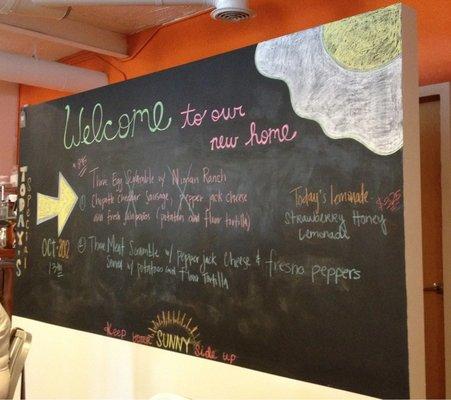 Welcome to our
new home
Three Egg Scramble w/ Niman Ranch
1) Chipotle Cheddar Sausage, pepper jack cheese
and fresh Jalapeños (potatoes and flour tortilla)
2) Three Meat Scramble w/ pepper Jack Cheese & fresno peppers
Served w/ potatoes and Flour Tortilla
Today's lemonade
Strawberry Honey
Lemonade
TODAY'S
Special
OCT 2012
Keep your SUNNY side up